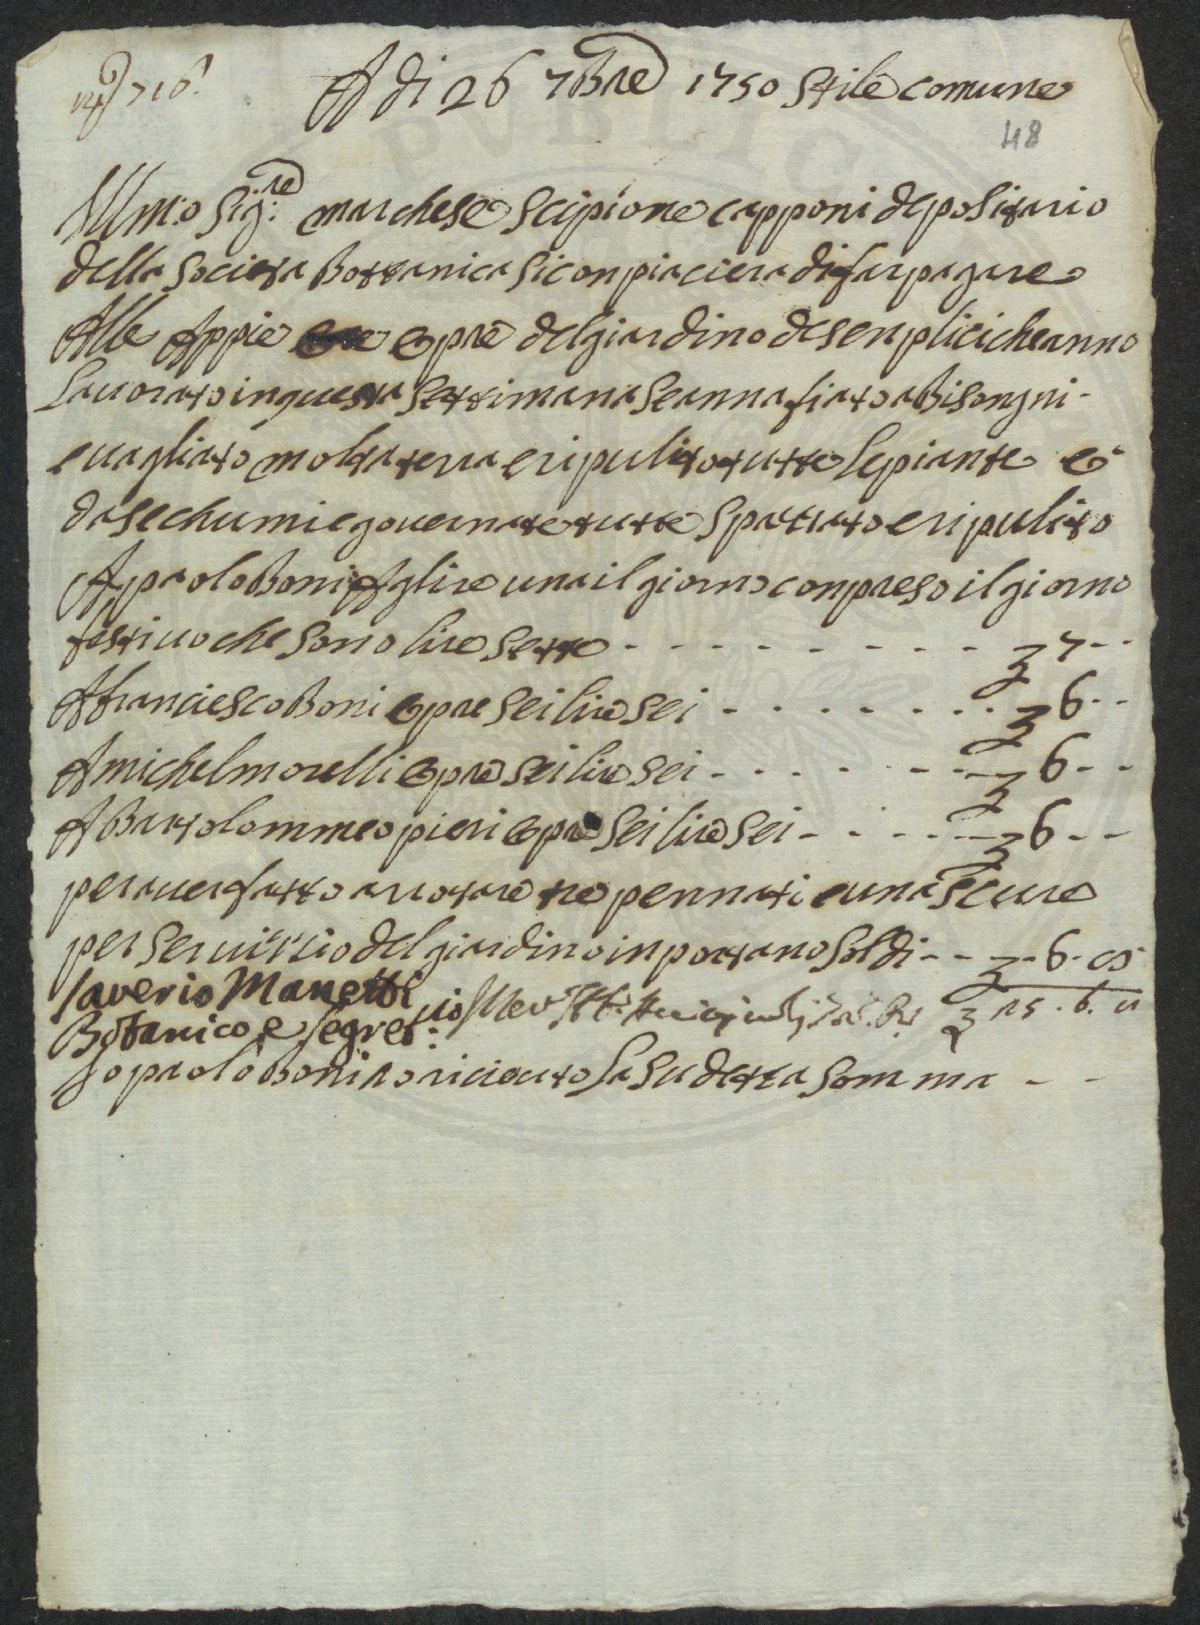 716
A di 26 7Bre 1750 Stile comune
48
Illmo Sig:re marchese Scipione capponi depositario
della societa Bottanica si conpiaciera di far pagare
Alle Appie opre del giardino de senplici che anno
lauorato in questa settimana se annafiato a Bisongni
e uagliato molta terra e ripulito tutte le piante e
da sechumi e gouernate tutte spatiato e ripulito
A paolo Boni A lire una il giorno conpreso il giorno
festiuo che sono lire sette - - - - - - - - - 7 - -
A franciesco Boni opre sei lire sei - - - - - - - 6 - -
A michel morelli opre sei lire sei - - - - - - - 6 - -
A Bartolommeo pieri opre sei lire sei - - - - - - 6 - -
per auer fatto arrotare tre pennati e una scure
per seruizio del giardino inportano soldi - - - - 6 -
Saverio Manetti
Botanico e Segret:rio 25 . 6 .
Jo paolo Boni o riceuto la sudetta somma - -